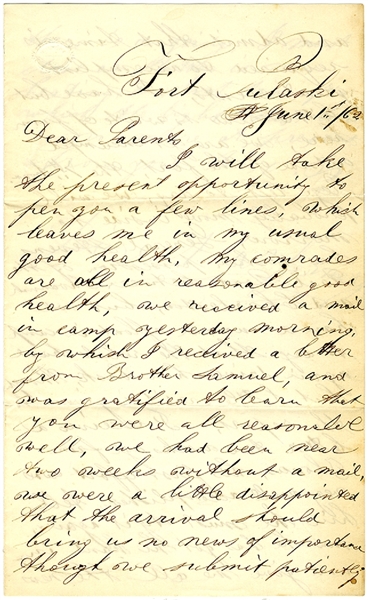 Fort Pulaski
June 1st /62
Dear Parents
I will take
the present opportunity to
pen you a few lines, which
leaves me in my usual
good health, my comrades
are all in reasonable good
health, we received a mail
in camp yesterday morning,
by which I recived a letter
from Brother Samuel, and
was gratified to learn that
you were all reasonable
well, we had been near
two weeks without a mail,
we were a little disappointed
that the arrival should
bring us no news of importance
though we submit patiently